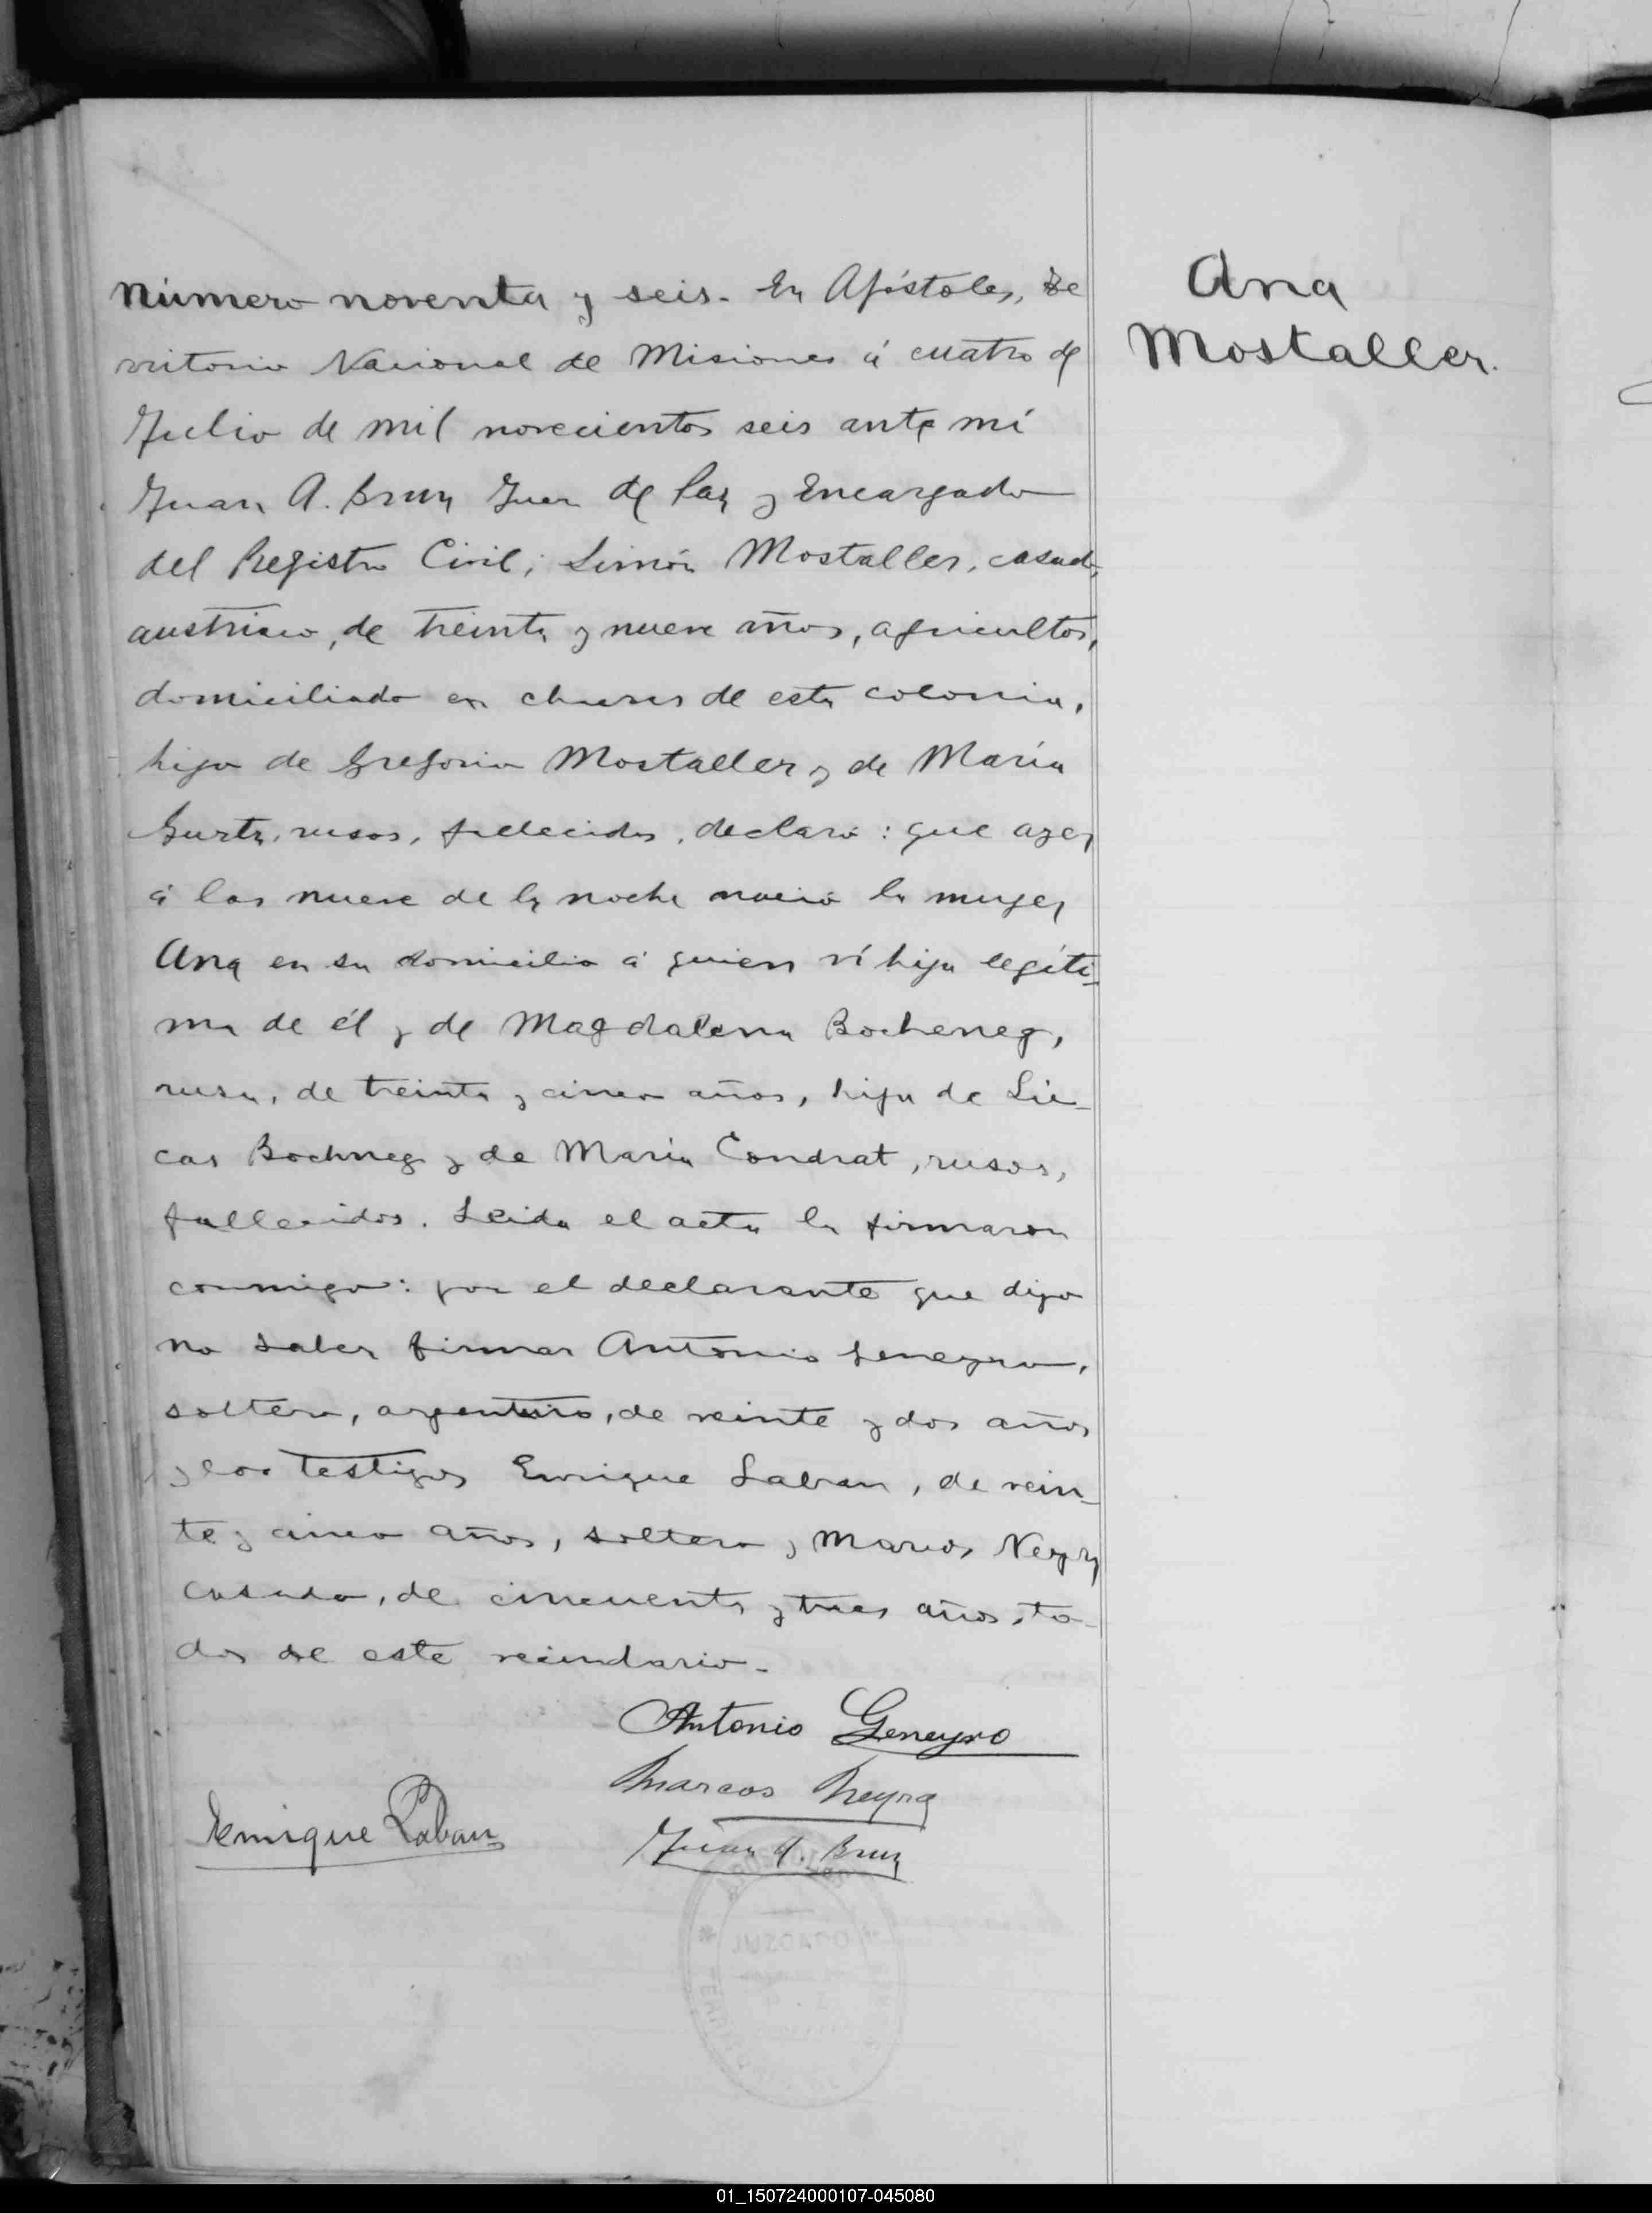 Número noventa y seis. En Apóstoles, Te
rritorio Nacional de Misiones á cuatro de
Julio de mil novecientos seis ante mí
Juan A. Brun Juez de Paz y Encargado
del Registro Civil; Simón Mostaller, casado,
austriaco, de treinta y nueve años, agricultor,
domiciliado en chacras de esta colonia,
hijo de Gregorio Mostaller y de María
rusos, fallecidos, declaró: que ayer
á las nueve de la noche nació la mujer
Ana en su domicilio á quien ví hija legíti-
ma de él y de Magdalena Bocheneg,
rusa, de treinta y cinco años, hija de Lu-
cas Bochneg y de María Condrat, rusos,
fallecidos. Leida el acta la firmaron
conmigo: por el declarante que dijo
no saber firmar Antonio Geneyro,
soltero, argentino, de veinte y dos años
y los testigos Enrique Laban, de vein-
te y cinco años, soltero y Marcos Neyra
casado, de cincuenta y tres años, to-
dos de este vecindario.
Antonio Geneyro
Marcos Neyra
Enrique Laban
Juan A. Brun
Ana
Mostaller.
JUZGADO
01_150724000107-045080